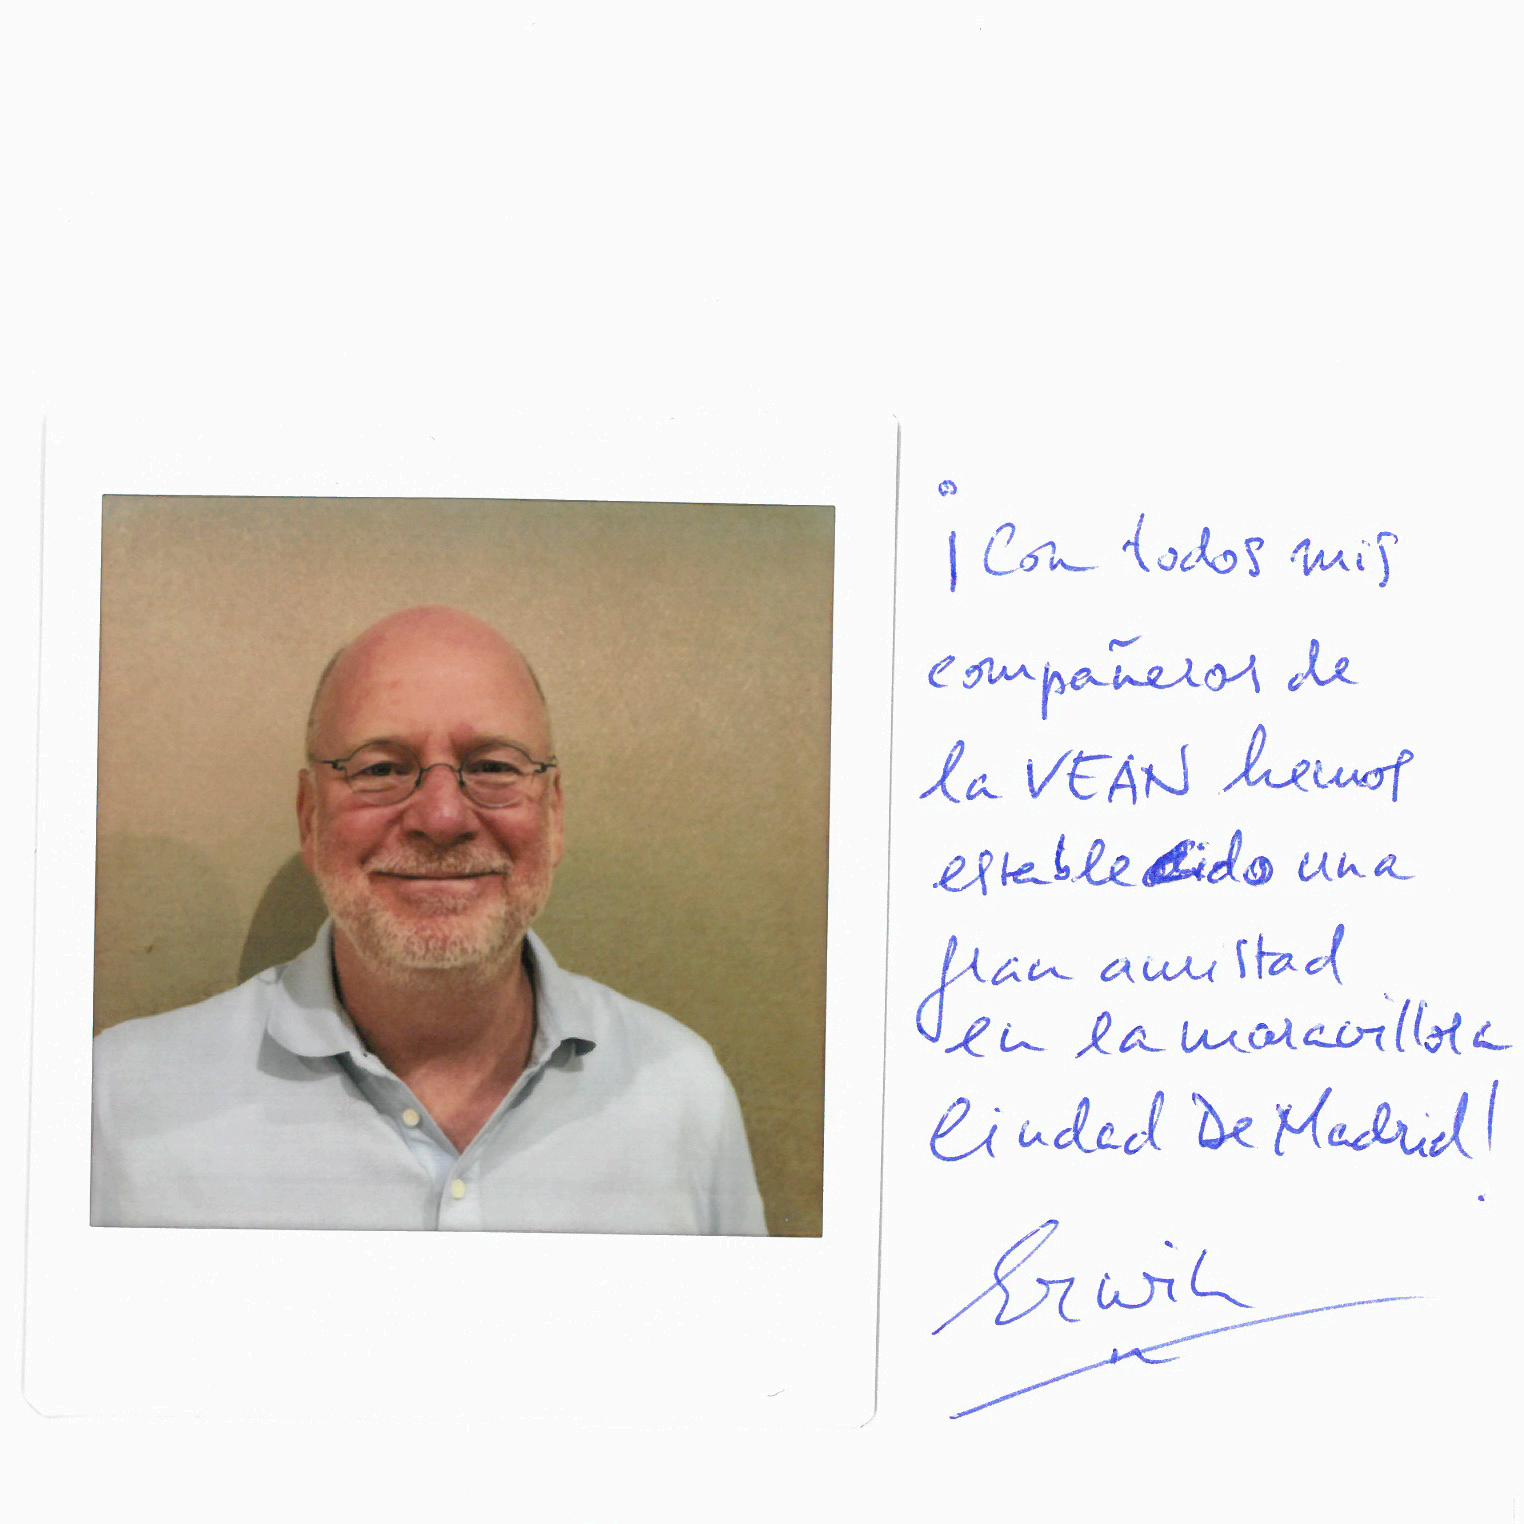 ¡Con todos mis
compañeros de
la VEAN hemos
establecido una
gran amistad
en la maravillosa
Ciudad De Madrid!
Erwin